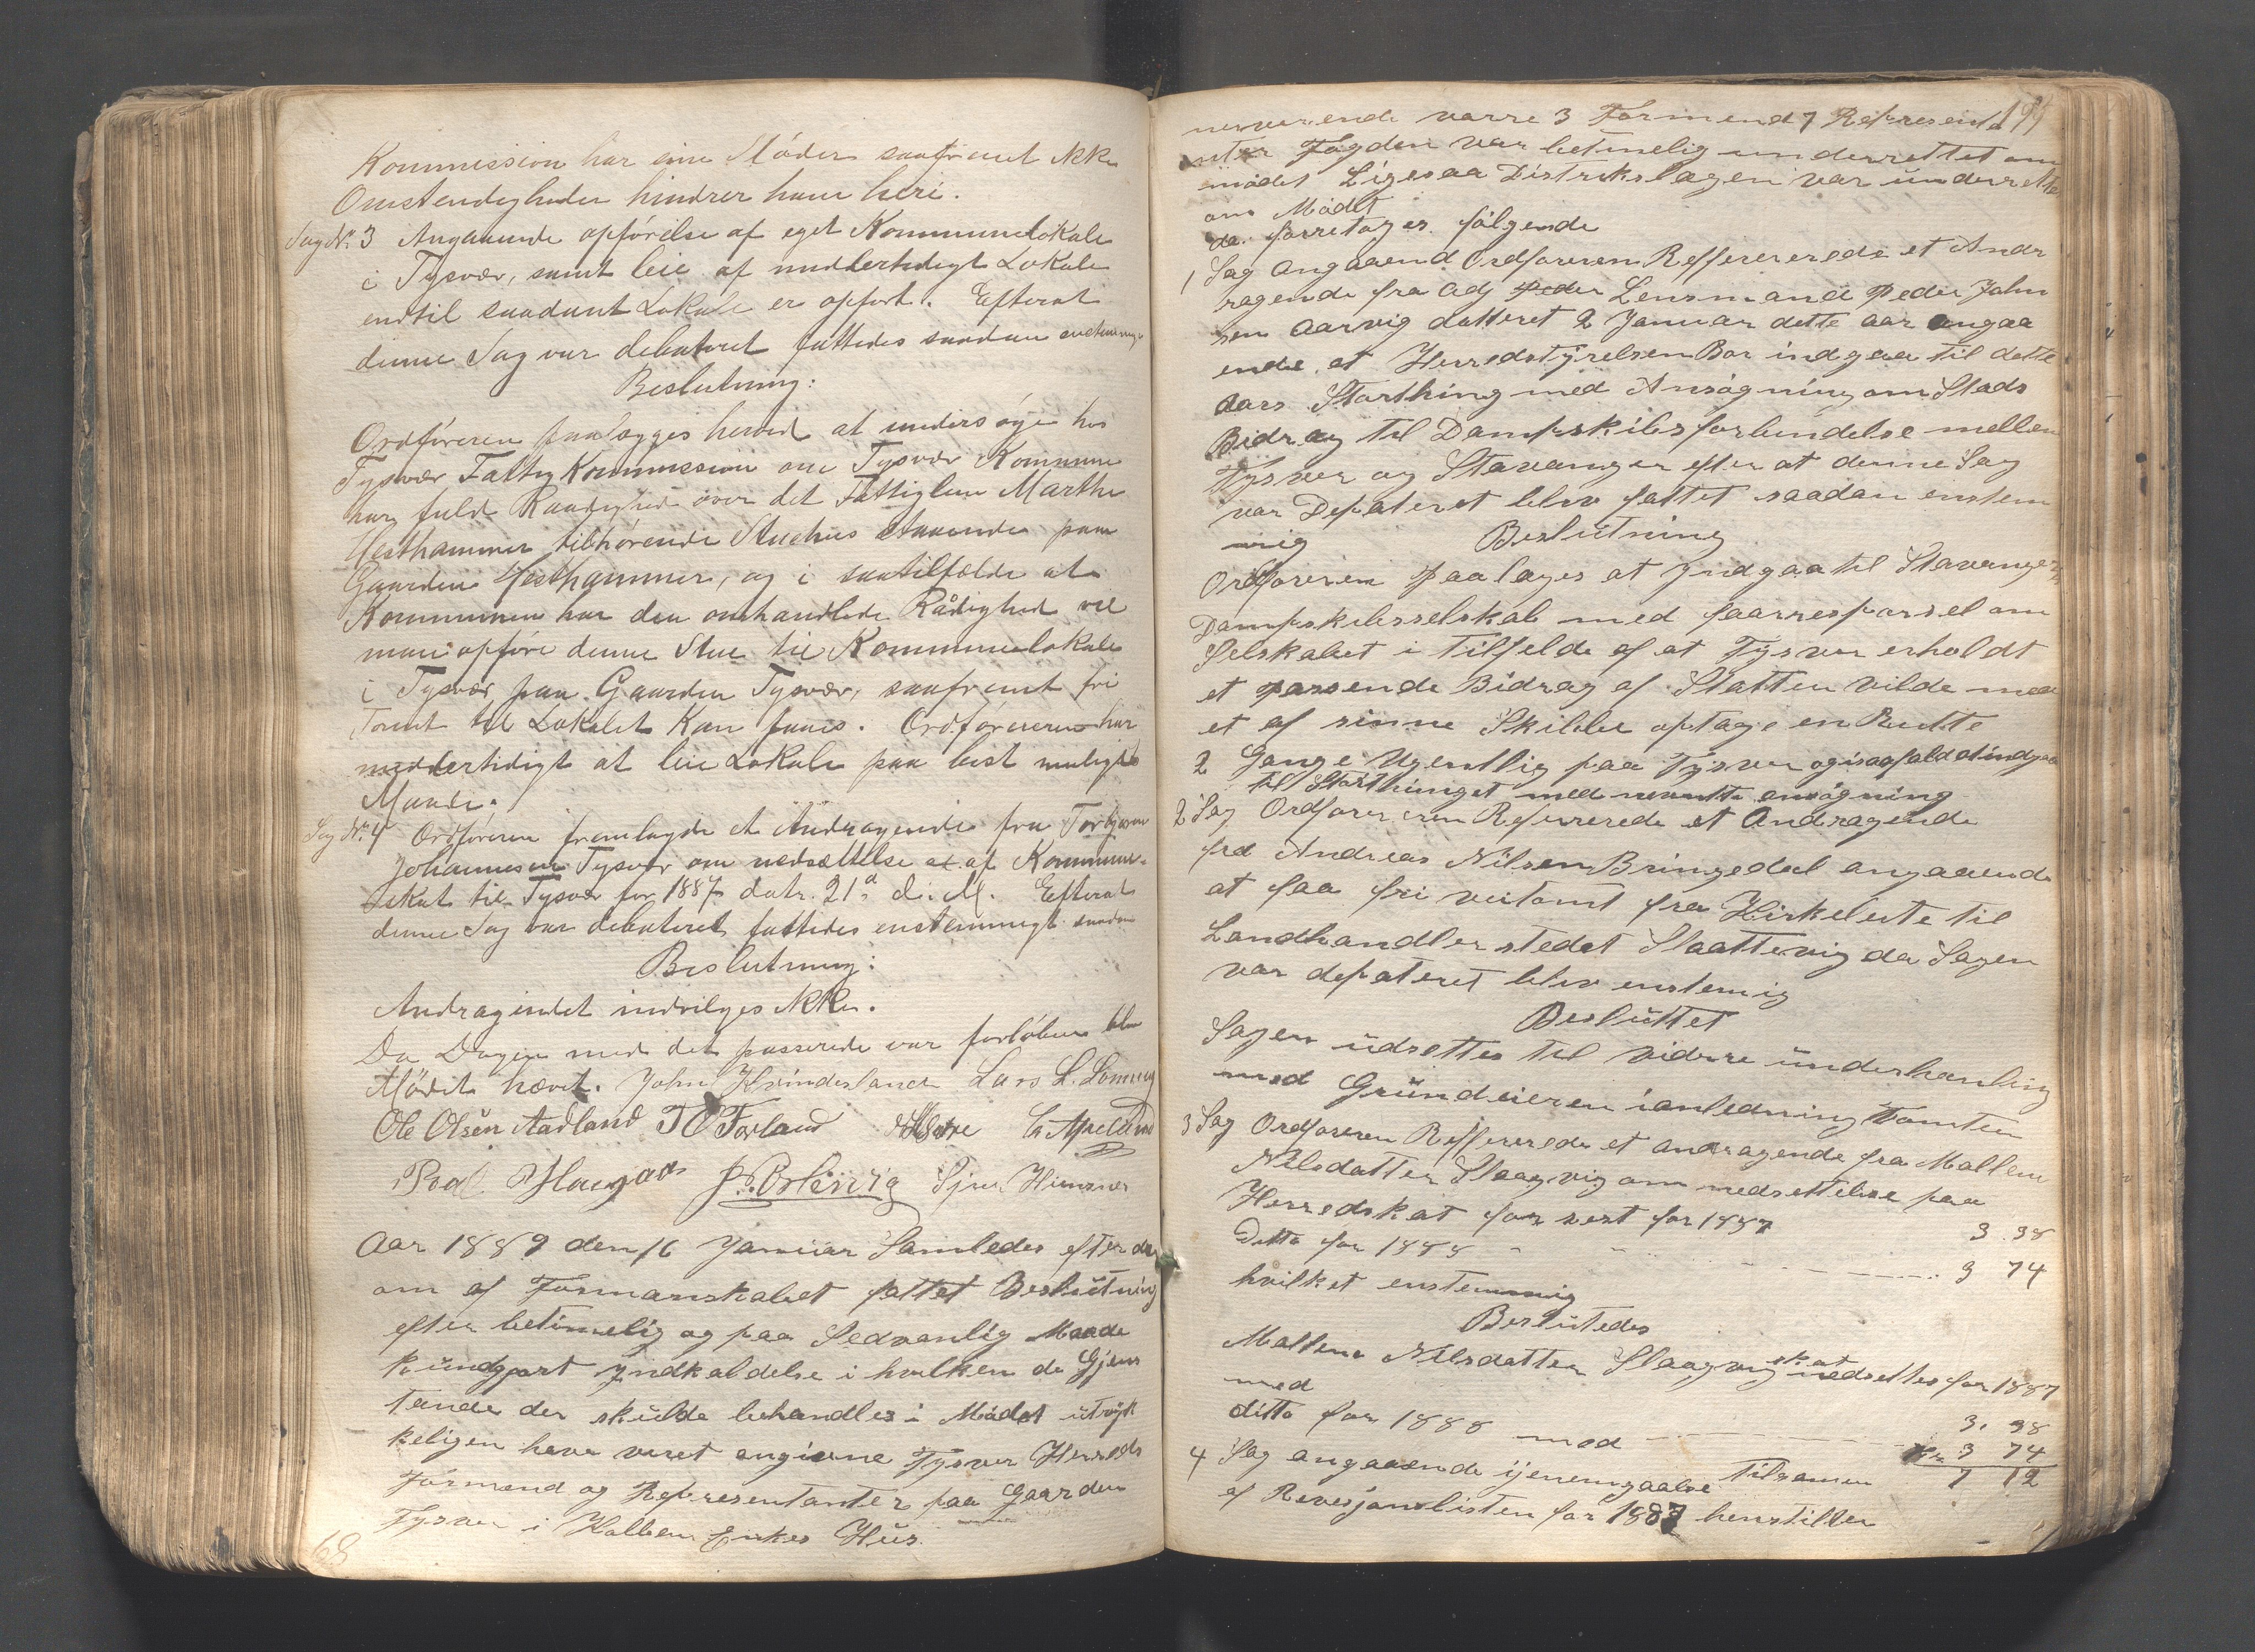 Kommission har sine Møder saafremt ikke
Omstendigheder hindrer ham heri.
Sag Nr. 3 Angaaende opførelse af eget Kommunelokale
i Tysvær, samt leie af midlertidigt Lokale
indtil saadant Lokale er opført. Efterat
denne Sag var debatteret fattedes saadan enstemmig
Beslutning:
Ordføreren paalægges herved at undersøge hos
Tysvær Fattigkommission om Tysvær Kommune
har fuld Raadighed over det Fattiglem Marthe
Hesthammer tilhørende Stuehus staaende paa
Gaarden Hesthammer, og i saatilfælde at
Kommunen har den omhandlede Rådighed vil
man opføre denne Stue til Kommunelokale
i Tysvær paa Gaarden Tysvær, saafremt fri
Tomt til Lokalet kan faaes. Ordføreren har
middertidigt at leie Lokale paa best muligt
Maade.
Sag Nr. 4 Ordføreren fremlagde et Andragende fra Torbjørn
Johannesen Tysvær om nedsættelse af Kommune-
skat til Tysvær for 1887 datr. 21. d. M. Efterat
denne Sag var debatteret fattedes enstemmigt saadan
Beslutning:
Andragendet indvilges ikke.
Da Dagen med det passerede var forløben blev
Mødet hævet. John Kvinnesland Lars L. Lønning
Ole Olsen Aadland T O Førland
Poal Haugaas Sjur Himsnes
Aar 1889 den 16 Januar Samledes efter der
om af Formanskabet fattet Beslutning
efter betimelig og paa Sedvanlig Maade
kundgjort Yndkaldelse i hvilken de Gjens
tande der skulde behandles i Mødet utryk
keligen have veret angivne Tysver Herreds
Formend og Representanter paa Gaarden
Tysver i Enkes Hus.
68
199
nerverende varre 3 Formend 7 Represent
anter Fogden var betimelig underrettet om
mødet Ligesaa Distrikslægen var underrettet
om Mødet
da forretages følgende
1 Sag Angaaend Ordføreren Reffererede et Andr
ragende fra Adj Lensmand Peder John
sen Aarvig datteret 2 Januar dette aar angaa
ende at Herredstyrelsen Bør indgaa til dette
Aars Storthing med Ansøgning om Stads
Bidrag til Dampskibsforbindelse mellem
Tysver og Stavanger efter at denne Sag
var Depateret blev fattet saadan enstem
mig Beslutning
Ordføreren paalages at Yndgaa til Stavanger
Dampskibsselskab med faarrespørsel om
Selskabet i Tilfelde af at Tysver erholdt
et passende Bidrag af Statten vilde med
et af sinne Skibbe optage en Rutte
2 Gange Ugentlig paa Tysver og isaafald at indgaa
til Storthinget med nevnte ansøgning
2 Sag Ordføreren Refererede et Andragende
fra Andreas Nilsen Bringedal angaaende
at faa fri veitomt fra Kirkeleite til
Landhandler stedet Slaattevig da Sagen
var depateret blev enstemig
Besluttet
Sagen udsettes til vidre underhanling
med Grundeieren i anledning Tomten
3 Sag Ordføreren Reffererede et andragende fra Mallene
Nilsdatter Slaagvig om nedsettelse paa
Herredskat for rest for 1887 3 38
Ditto for 1888 3 74
hvilket enstemmig
Beslutedes
Mallene Nilsdatter Slaagvig skat nedsettes for 1887
med 3. 38
ditto for 1888 med 3 74
Tilsamen 7 12
4 Sag angaaende ijenemgaalse
af Revesjonslisten for 1887 henstilles